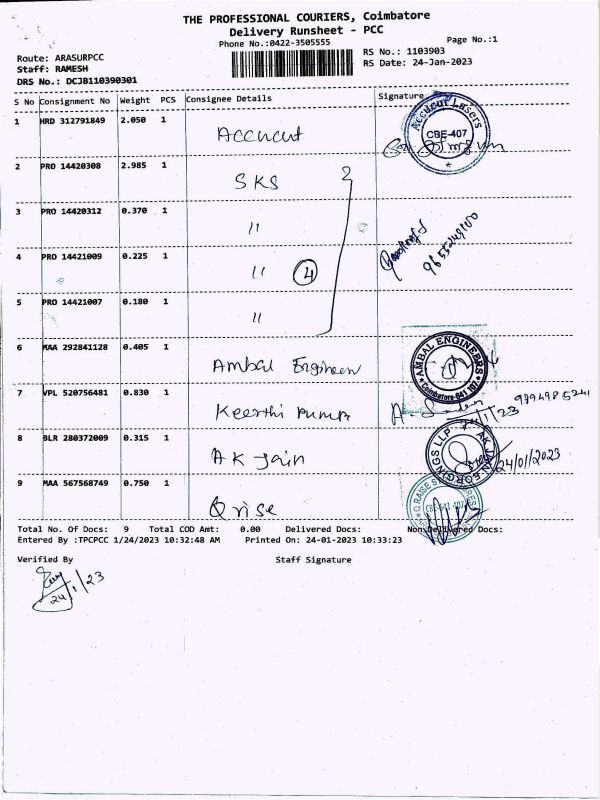 THE PROFESSIONAL COURIERS, Coimbatore
Delivery Runsheet - PCC
Phone No.:0422-3505555
Page No.:1
Route: ARASURPCC
RS No.: 1103903
Staff: RAMESH
RS Date: 24-Jan-2023
DRS No.: DCJB110390301
S No Consignment No Weight PCS Consignee Details Signature
1 HRD 312791849 2.050 1 Accucut
Accucut Lasers
CBE-407
2 PRO 14420308 2.985 1 SKS
3 PRO 14420312 0.370 1 "
4 PRO 14421009 0.225 1 " 4
5 PRO 14421007 0.180 1 "
6 MAA 292841128 0.405 1 Ambal Engineer
AMBAL ENGINEERS
Coimbatore-641 107
7 VPL 520756481 0.830 1 Keerthi Pumps
24/1/23
8 BLR 280372009 0.315 1 AK Jain
24/01/2023
9 MAA 567568749 0.750 1 Qrise
Total No. Of Docs: 9 Total COD Amt: 0.00 Delivered Docs: Non Delivered Docs:
Entered By :TPCPCC 1/24/2023 10:32:48 AM Printed On: 24-01-2023 10:33:23
Verified By Staff Signature
24/1/23